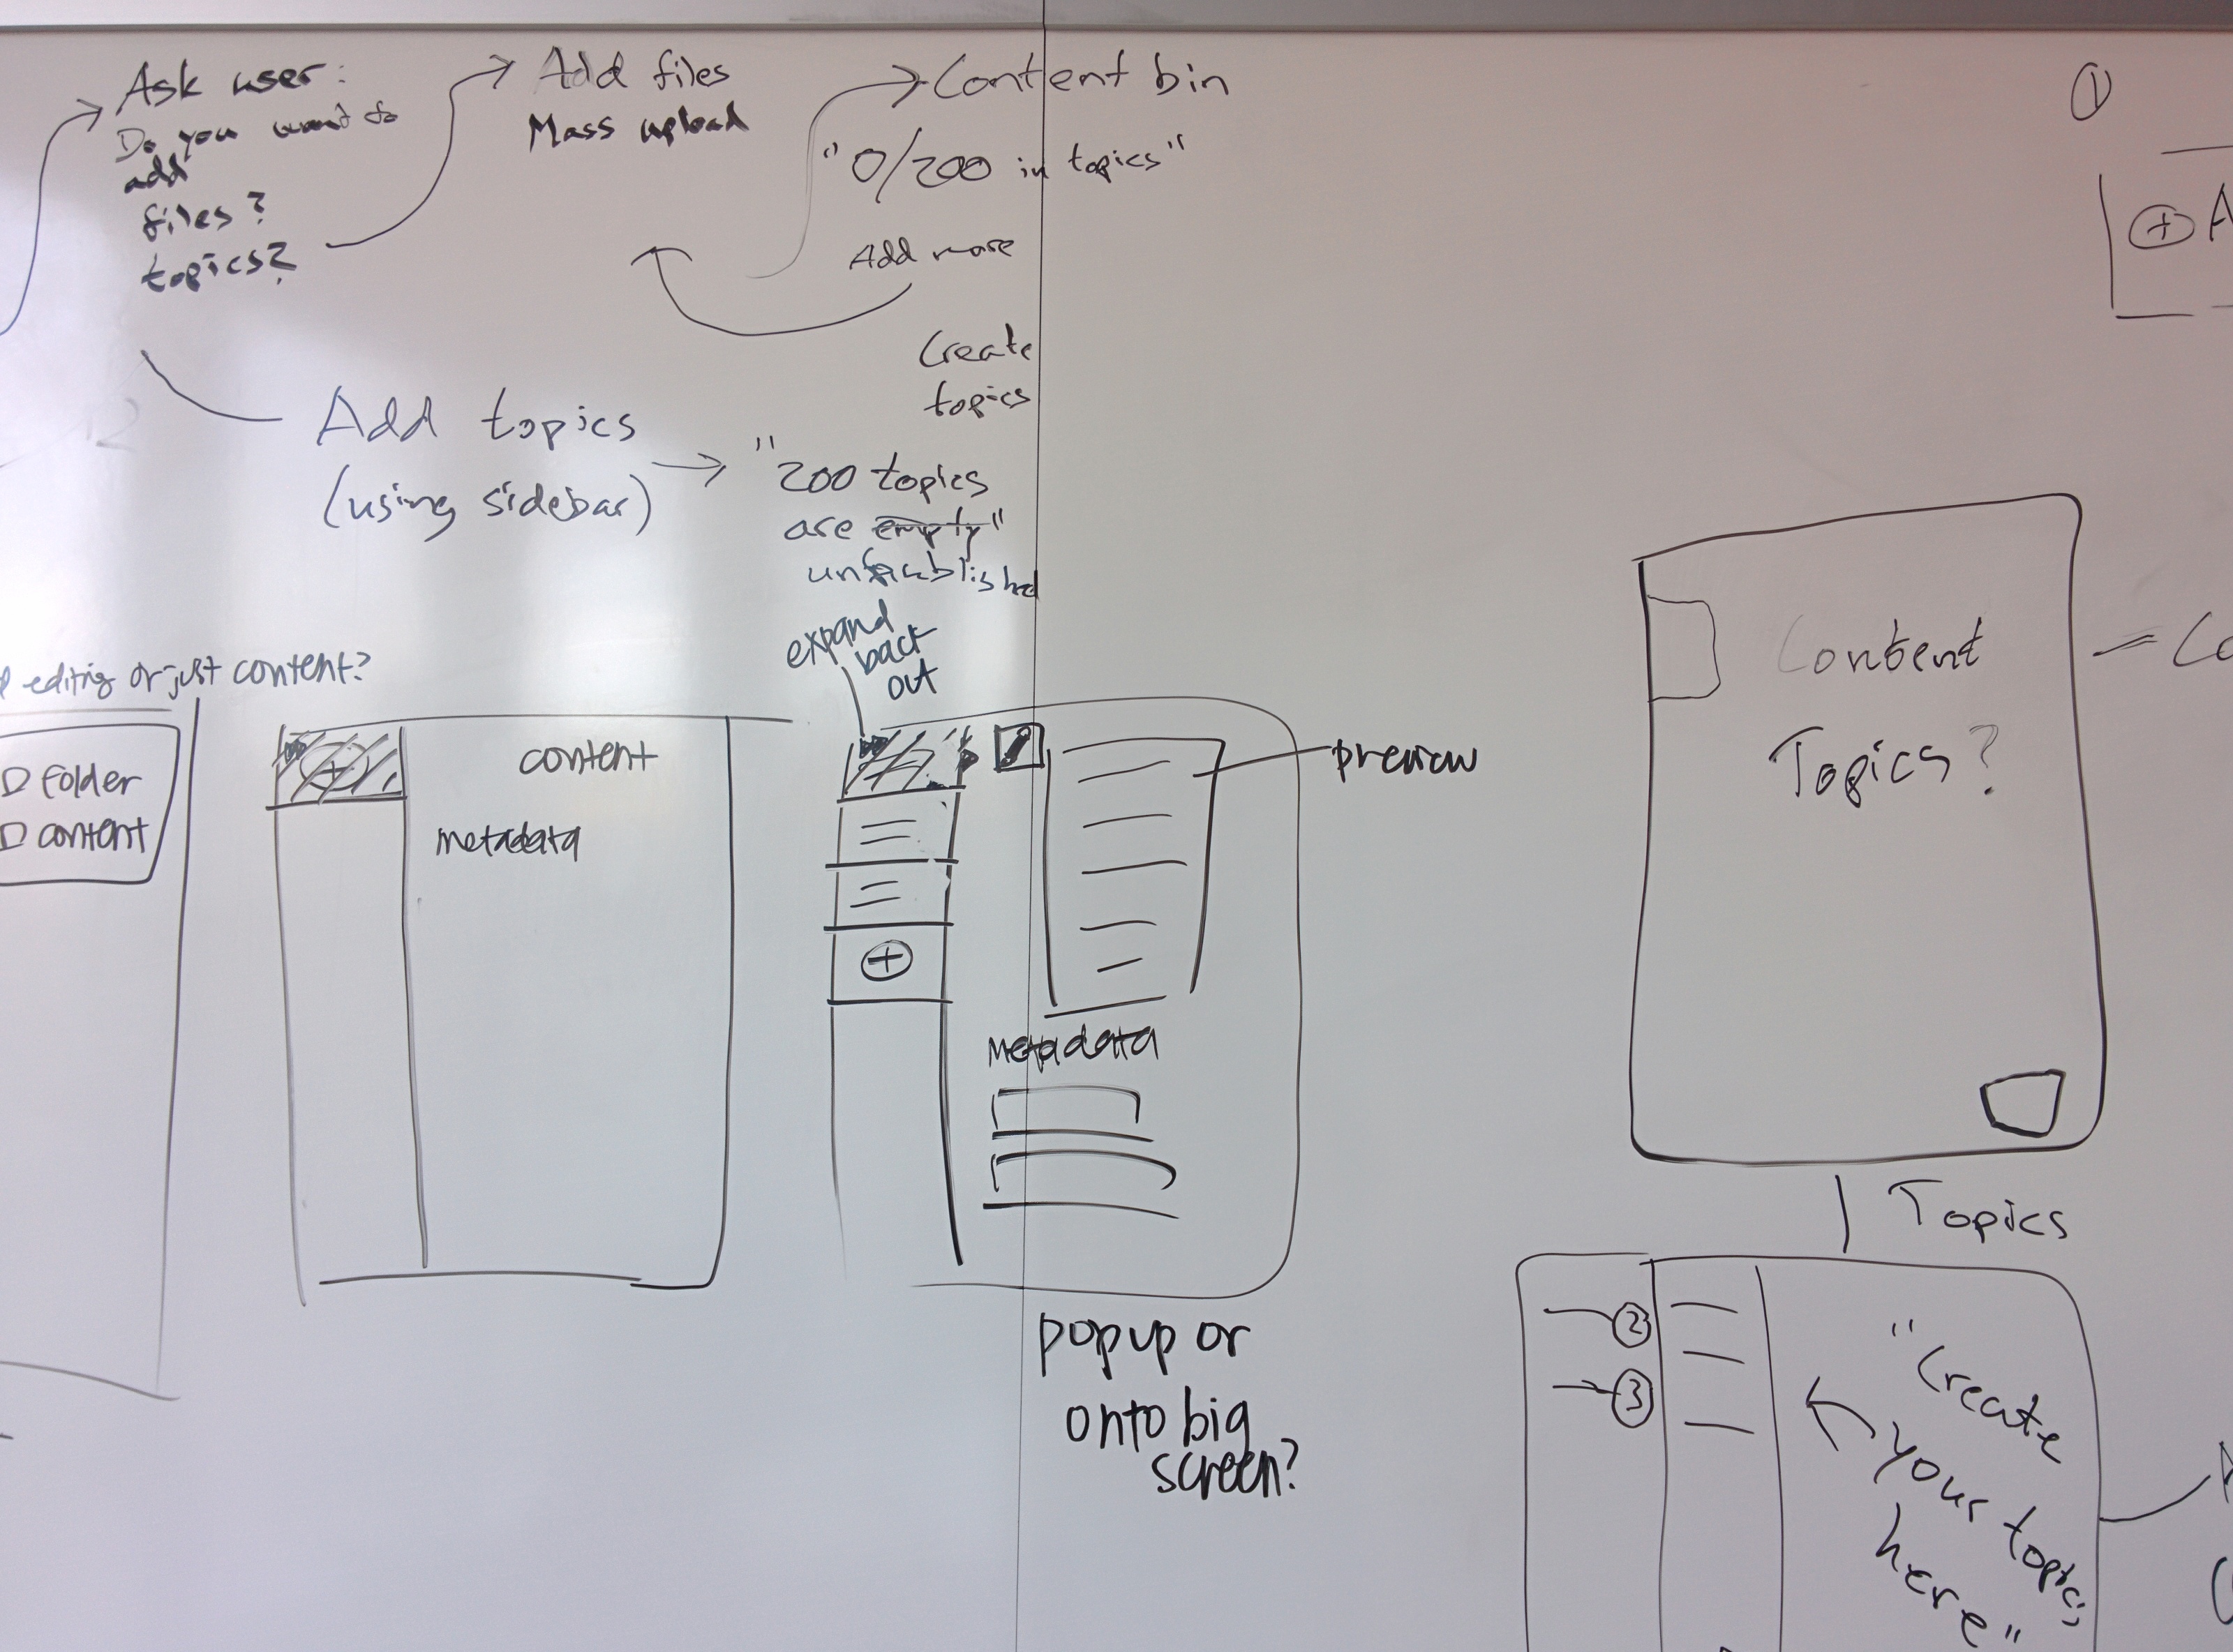 Ask user:
Do you want to
add
files?
topics?
Add files
Mass upload
Content bin
"0/200 in topics"
Add more
Create
topics
Add topics
(using sidebar)
"200 topics
are empty"
unpublished
expand
back
out
editing or just content?
folder
content
content
metadata
preview
metadata
popup or
onto big
screen?
1
+ A
Content
Topics?
Co
Topics
2
3
"Create
your topics
here"